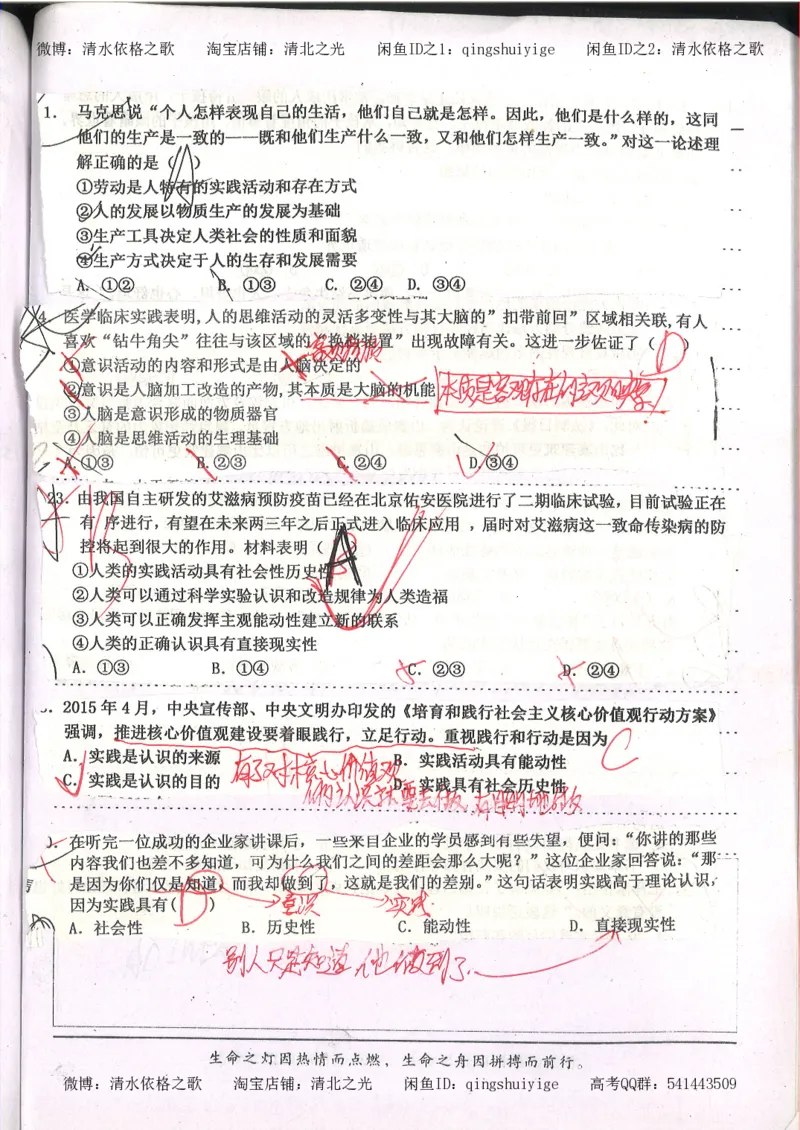 微博：清水依格之歌 淘宝店铺：清北之光 闲鱼ID之1：qingshuiyige 闲鱼ID之2：清水依格之歌
1. 马克思说“个人怎样表现自己的生活，他们自己就是怎样。因此，他们是什么样的，这同
他们的生产是一致的——既和他们生产什么一致，又和他们怎样生产一致。”对这一论述理
解正确的是（A）
①劳动是人特有的实践活动和存在方式
②人的发展以物质生产的发展为基础
③生产工具决定人类社会的性质和面貌
④生产方式决定于人的生存和发展需要
A. ①② B. ①③ C. ②④ D. ③④
4. 医学临床实践表明,人的思维活动的灵活多变性与其大脑的”扣带前回”区域相关联,有人
喜欢“钻牛角尖”往往与该区域的“换档装置”出现故障有关。这进一步佐证了（D）
①意识活动的内容和形式是由人脑决定的
②意识是人脑加工改造的产物,其本质是大脑的机能 本质是客观存在的主观映象
③人脑是意识形成的物质器官
④人脑是思维活动的生理基础
A.①③ B.②③ C.②④ D.③④
23. 由我国自主研发的艾滋病预防疫苗已经在北京佑安医院进行了二期临床试验，目前试验正在
有 序进行，有望在未来两三年之后正式进入临床应用 ，届时对艾滋病这一致命传染病的防
控将起到很大的作用。材料表明（A）
①人类的实践活动具有社会性历史性
②人类可以通过科学实验认识和改造规律为人类造福
③人类可以正确发挥主观能动性建立新的联系
④人类的正确认识具有直接现实性
A. ①③ B. ①④ C. ②③ D. ②④
2015 年 4 月，中央宣传部、中央文明办印发的《培育和践行社会主义核心价值观行动方案》
强调，推进核心价值观建设要着眼践行，立足行动。重视践行和行动是因为 C
A. 实践是认识的来源 B. 实践活动具有能动性
C. 实践是认识的目的 D. 实践具有社会历史性
有了对核心价值观
的认识就要去做
在听完一位成功的企业家讲课后，一些来自企业的学员感到有些失望，便问：“你讲的那些
内容我们也差不多知道，可为什么我们之间的差距会那么大呢？”这位企业家回答说：“那
是因为你们仅是知道，而我却做到了，这就是我们的差别。”这句话表明实践高于理论认识，
因为实践具有(D) 意识 实践
A. 社会性 B. 历史性 C. 能动性 D. 直接现实性
别人只是知道，他做到了
生命之灯因热情而点燃，生命之舟因拼搏而前行。
微博：清水依格之歌 淘宝店铺：清北之光 闲鱼ID：qingshuiyige 高考QQ群：541443509